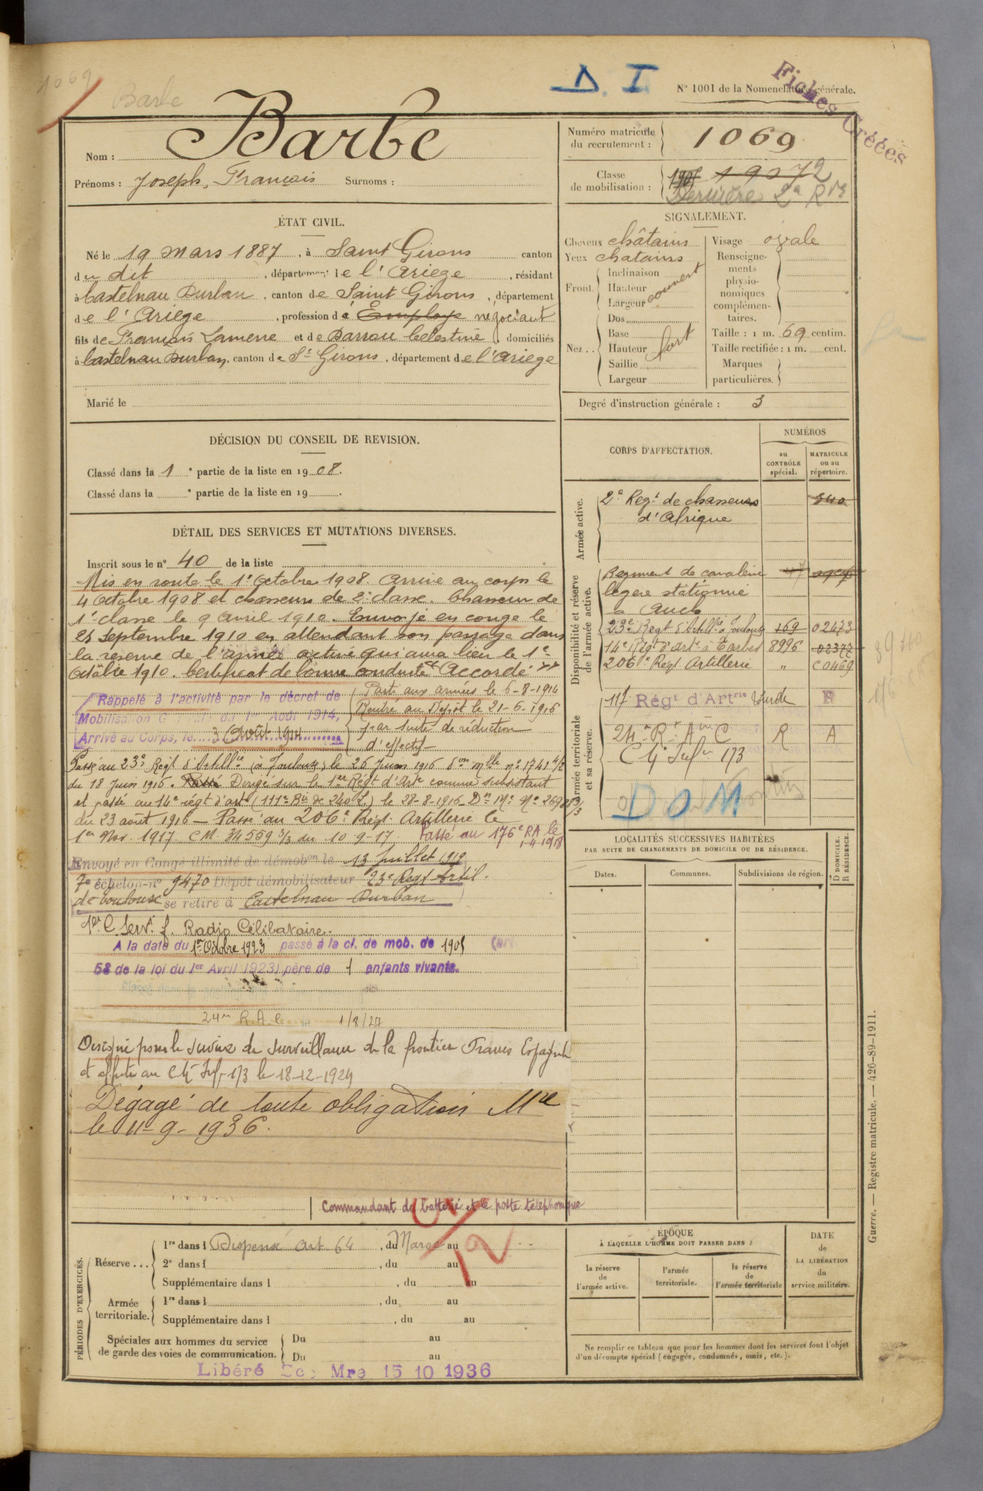 1069
Barbe
D. I.
N° 1001 de la Nomenclature générale.
Fiches Créées
Nom : Barbe
Prénoms : Joseph, François Surnoms :
Numéro matricule du recrutement : 1069
Classe de mobilisation : 1907 2
Dernière 2e Rve
ÉTAT CIVIL.
Né le 19 mars 1887, à Saint Girons canton
du dit, département de l'Ariège, résidant
à Castelnau Durban, canton de Saint Girons, département
de l'Ariège, profession d'Employé négociant
fils de François Lamene et de Barrau Célestine, domiciliés
à Castelnau Durban, canton de St Girons, département de l'Ariège
Marié le
SIGNALEMENT.
Cheveux châtains
Yeux chatains
Front. Inclinaison
Hauteur
Largeur
couvert
Nez.. Dos
Base
Hauteur fort
Saillie
Largeur
Visage ovale
Renseignements physionomiques complémentaires.
Taille : 1 m. 69 centim.
Taille rectifiée : 1 m. cent.
Marques particulières.
Degré d'instruction générale : 3
DÉCISION DU CONSEIL DE REVISION.
Classé dans la 1e partie de la liste en 1908.
Classé dans la e partie de la liste en 19 .
DÉTAIL DES SERVICES ET MUTATIONS DIVERSES.
Inscrit sous le n° 40 de la liste
Mis en route le 1er Octobre 1908. Arrivé au corps le
4 Octobre 1908 et chasseur de 2e classe. Chasseur de
1e classe le 9 avril 1910. Envoyé en congé le
25 Septembre 1910 en attendant son passage dans
la réserve de l'armée active qui aura lieu le 1er
Octobre 1910. Certificat de bonne conduite Accordé
Rappelé à l'activité par le décret de
Mobilisation Générale du 1er Août 1914,
Arrivé au Corps, le 3 Août 1914
Parti aux armées le 6-8-1914
Rentré au Dépôt le 21-6-1916
par suite de réduction
d'effectif
Passé au 23e Régt d'Artillie (à Toulouse) le 26 Juin 1916
du 18 Juin 1916. Dirigé sur le 1er Régt d'Artie comme subsistant
et passé au 14e régt d'artie (111e Bie de 240 L) le 28-8-1916
du 23 août 1916 — Passé au 206e Régt Artillerie le
1er Nov. 1917 C.M. 34569 3/3 du 10-9-17 Passé au 176e RA le
1-4-1918
Envoyé en Congé illimité de démobon le 13 Juillet 1919
7e échelon n° 9470 Dépôt démobilisateur 23e Régt Artil.
de Toulouse se retire à Castelnau Durban
Radio Célibataire.
A la date du 1er Octobre 1923 passé à la cl. de mob. de 1905
58 de la loi du 1er Avril 1923) père de 1 enfants vivants.
24me R.A.
Désigné pour le service de surveillance de la frontière Franco Espagnole
et affecté au 173 le 18-12-1929
Dégagé de toute obligation Mre
le 11-9-1936.
Commandant de batterie et de poste téléphonique
CORPS D'AFFECTATION.
NUMÉROS
au CONTRÔLE spécial.
MATRICULE ou au répertoire.
Armée active.
2e Regt de chasseurs 340
d'Afrique
Disponibilité et réserve de l'armée active.
Régiment de cavalerie
légère stationné
à Auch
23e Régt d'Artillie à Toulouse 169 02473
14e Régt d'Artie à Tarbes 8996 02377
206e Régt Artillerie " C0469
Armée territoriale et sa réserve.
117 Régt d'Artrie Lourde R
24me Rt Ain C R A
173
DOM
LOCALITÉS SUCCESSIVES HABITÉES
PAR SUITE DE CHANGEMENTS DE DOMICILE OU DE RÉSIDENCE.
Dates. Communes. Subdivisions de région.
D DOMICILE.
R RÉSIDENCE.
Guerre. — Registre matricule. — 426-89-1911.
PÉRIODES D'EXERCICES.
Réserve... 1re dans l Dispensé Art 64, du Maroc au
2e dans l , du au
Supplémentaire dans l , du au
Armée territoriale. 1re dans l , du au
Supplémentaire dans l , du au
Spéciales aux hommes du service de garde des voies de communication. Du au
Du au
12
Libéré Sce Mre 15 10 1936
ÉPOQUE
À LAQUELLE L'HOMME DOIT PASSER DANS :
la réserve de l'armée active.
l'armée territoriale.
la réserve de l'armée territoriale
DATE de LA LIBÉRATION du service militaire.
Ne remplir ce tableau que pour les hommes dont les services font l'objet
d'un décompte spécial (engagés, condamnés, omis, etc.).